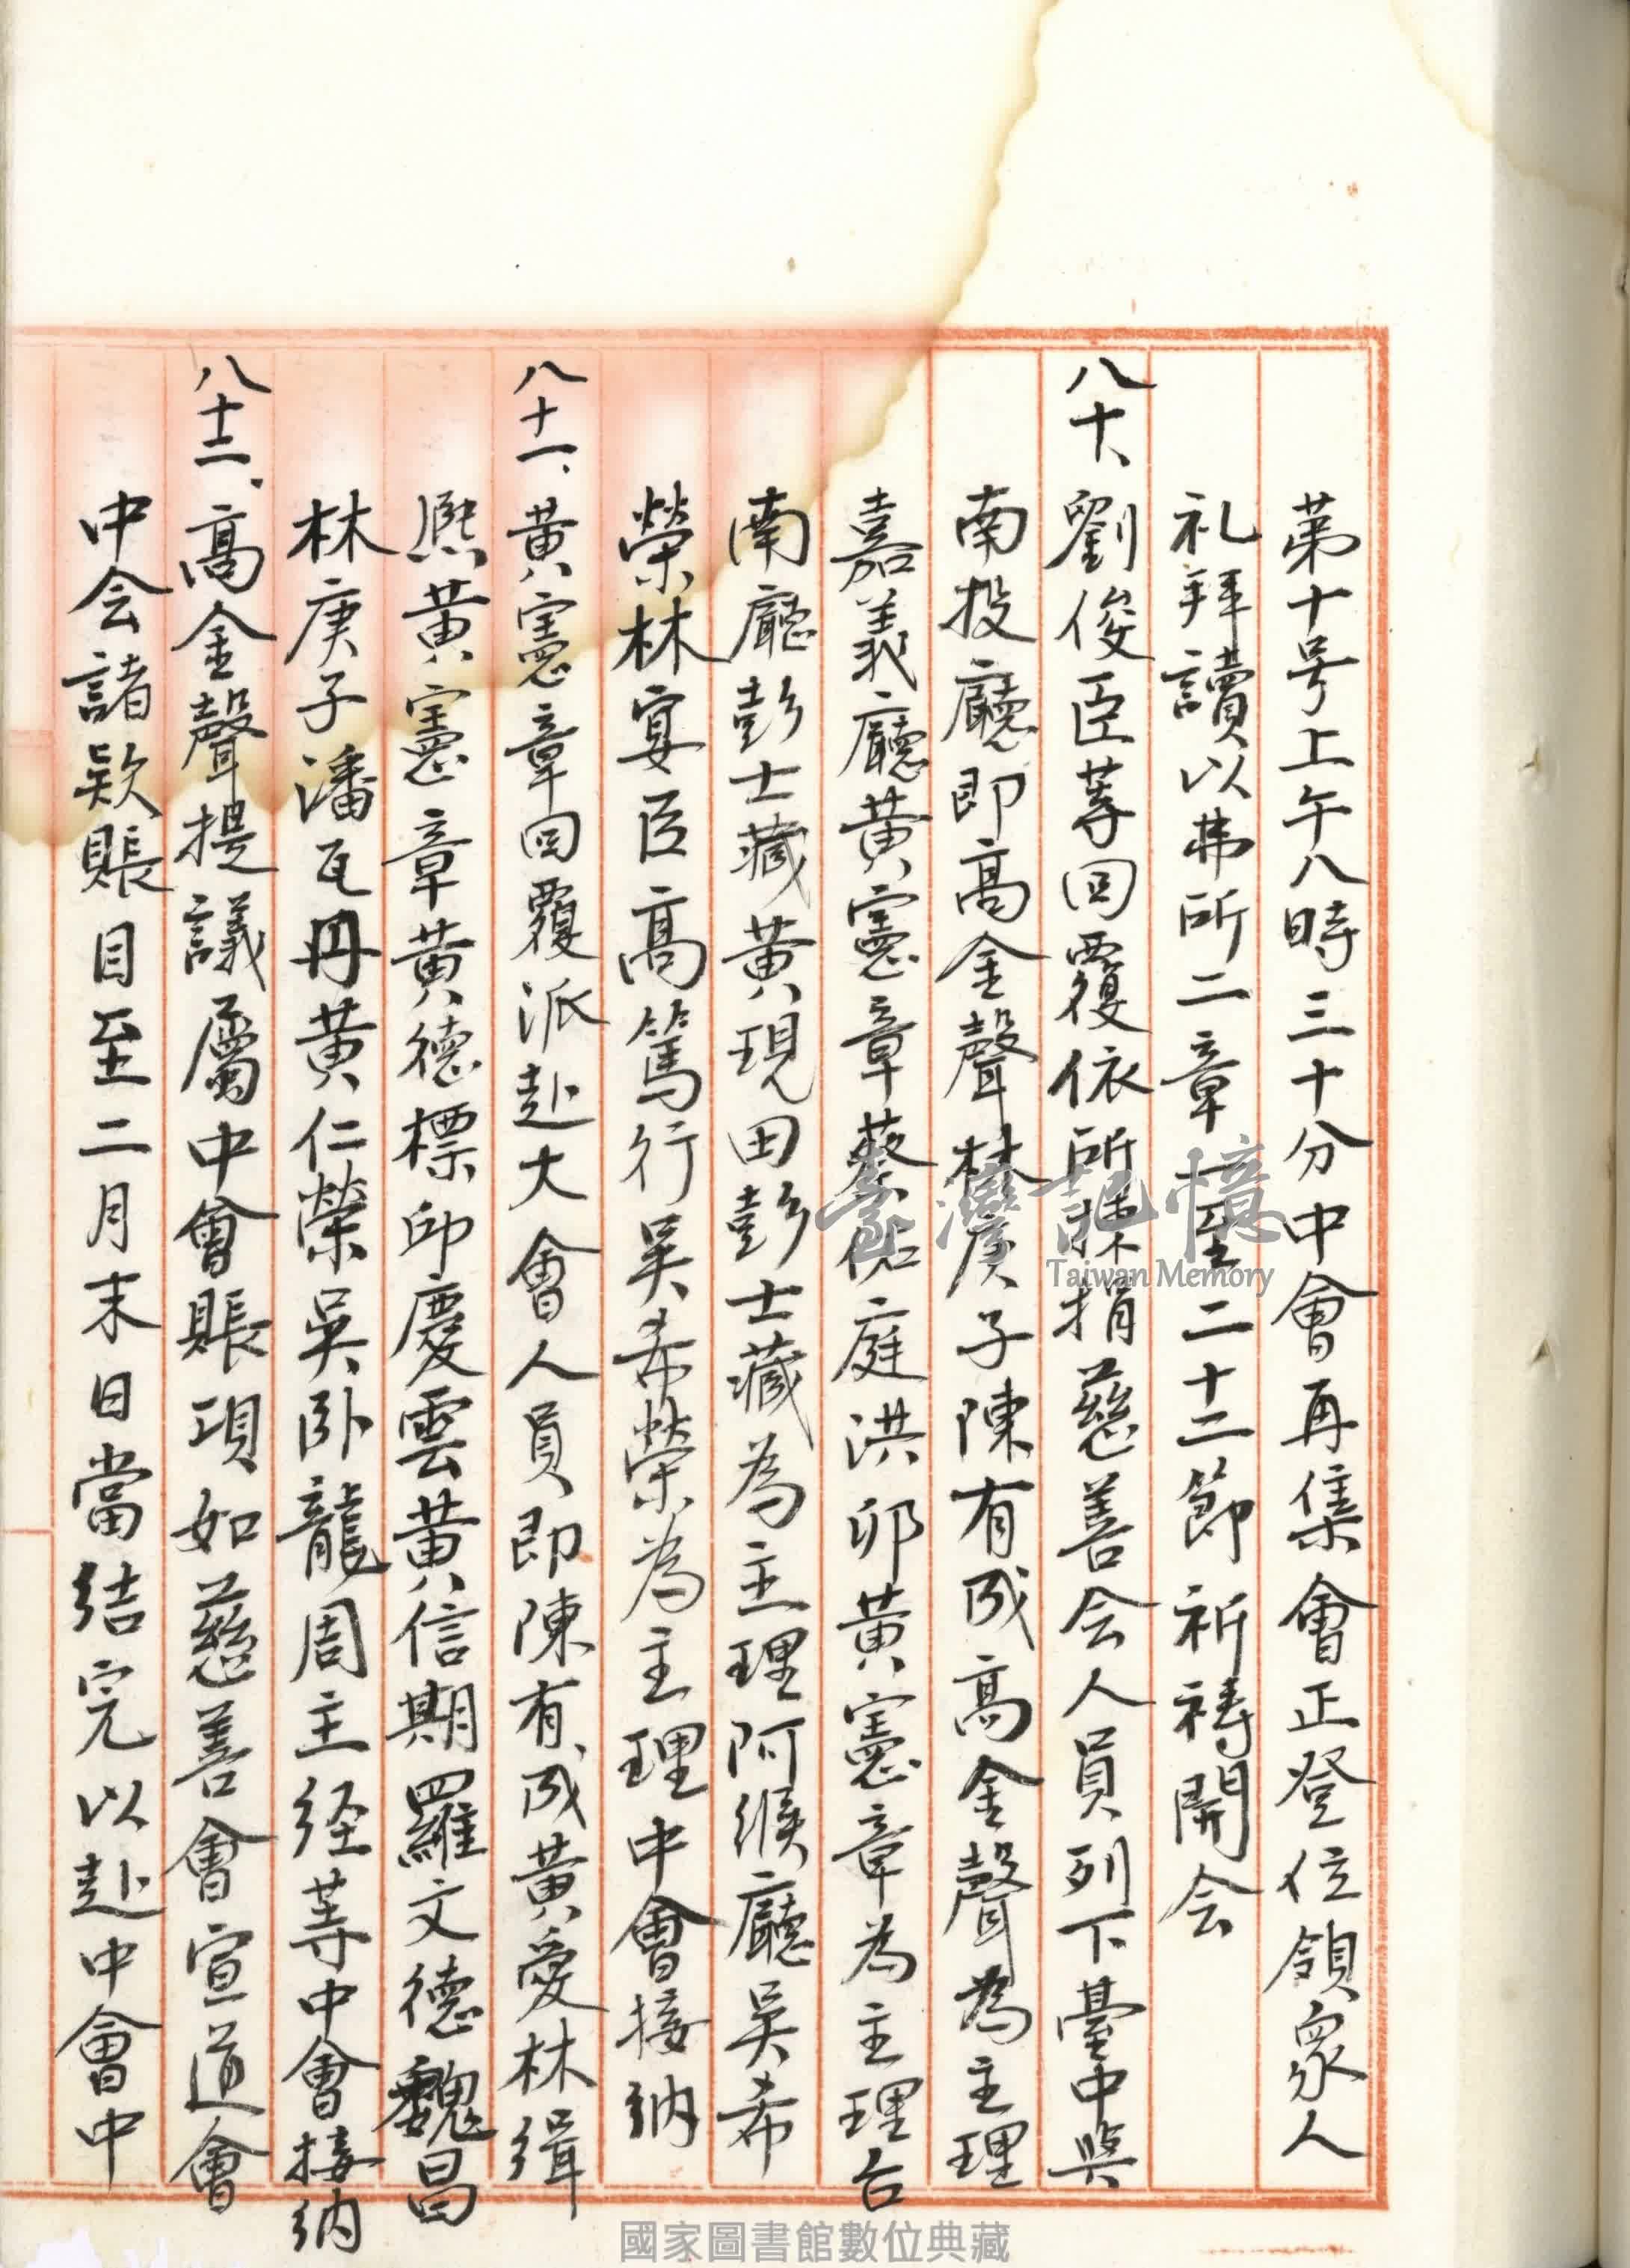 第十号上午八時三十分中會再集會正登位領眾人
礼拜讀以弗所二章一至二十二節祈禱開会
八十、劉俊臣等回覆依所擇捐慈善会人員列下臺中與
南投廳即高金聲林庚子陳有成高金聲為主理
嘉義廳黃憲章蔡佑庭洪卯黃憲章為主理台
南廳彭士藏黃現田彭士藏為主理阿緱廳吳希
榮林宴臣高篤行吳希榮為主理中會接納
八十一、黃憲章回覆派赴大會人員即陳有、成黃愛林緝
熙黃憲章黃德標邱慶雲黃信期羅文德魏昌
林庚子潘瓦丹黃仁榮吳卧龍周主経等中會接納
八十二、高金聲提議屬中會賬項如慈善會宣道會
中会諸欵賬目至二月末日當結完以赴中會中
臺灣記憶
Taiwan Memory
國家圖書館數位典藏